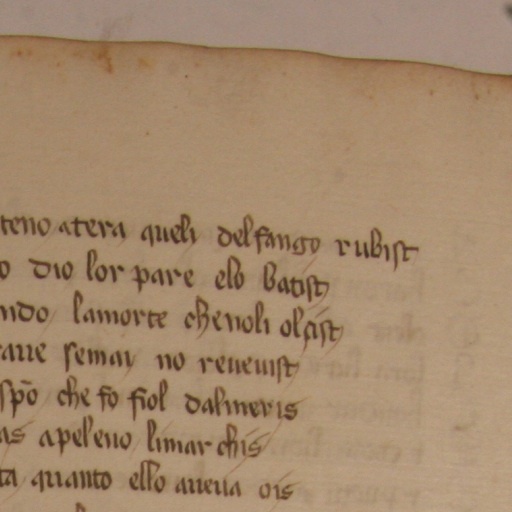 teno atera queli del fango rubist
o dio lor pare elo batist
ndo lamorte che noli olcist
aue se mai no reueuist
spõ che fo fiol dalmeris
as apeleno li marchis
ta quanto ello aueua ois